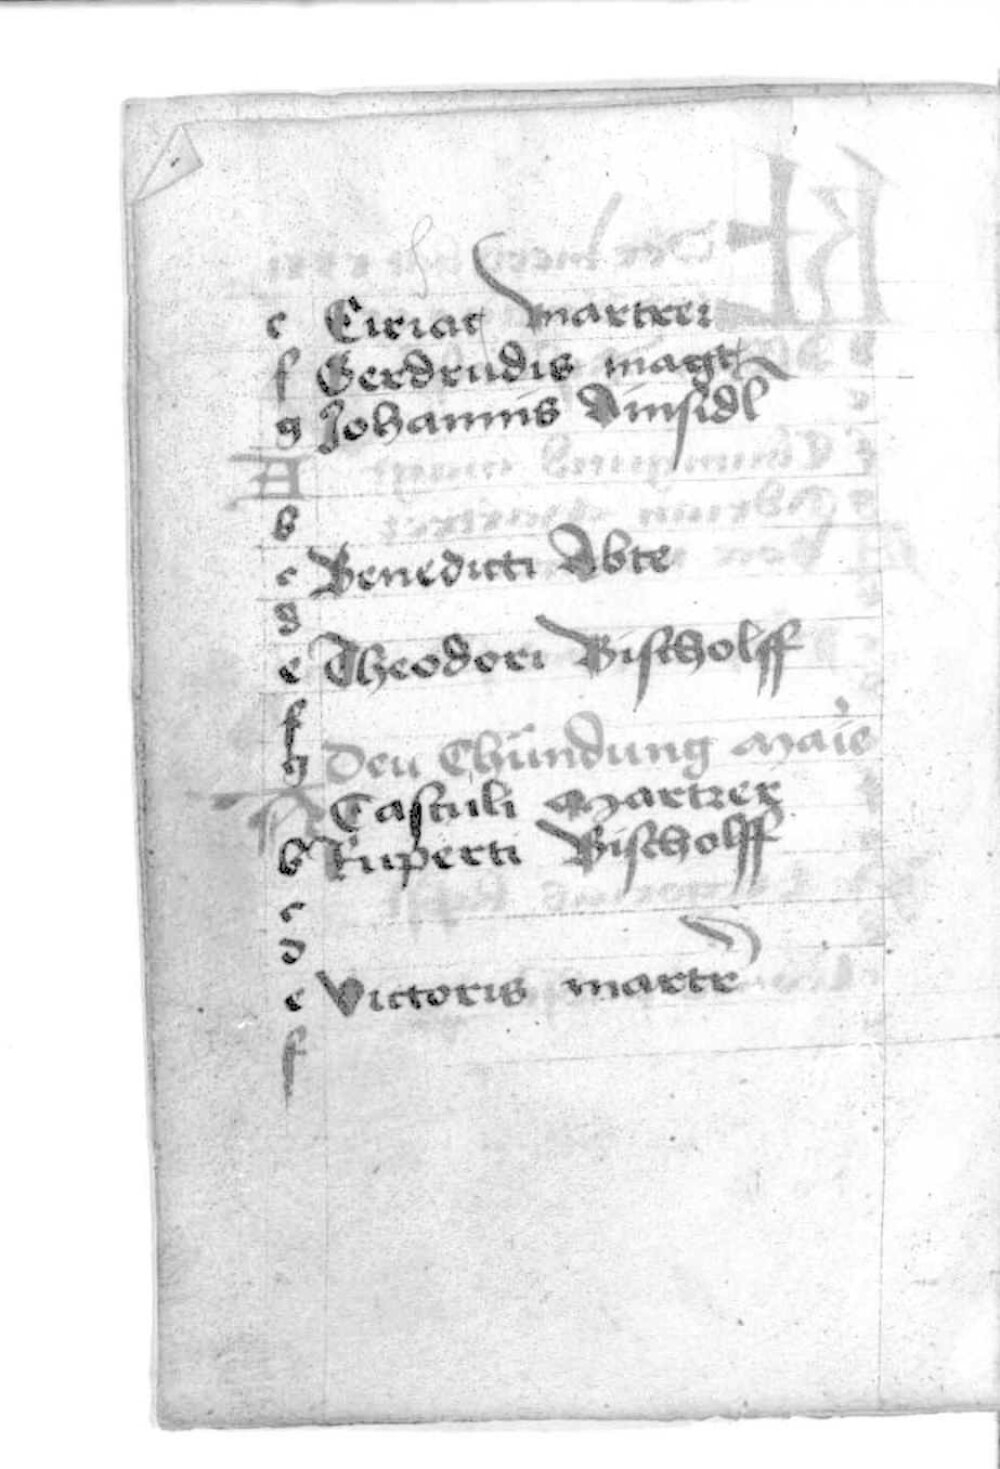 e Ciriac martrer
f Gerdrudis magt
g Johannis Ainsidl
A
b
c Benedicti Abte
g
e Theodori Bischolff
f
g Deu Chundung Marie
A Castuli Martrer
b Ruperti Bischolff
c
d
e Victoris martr
f